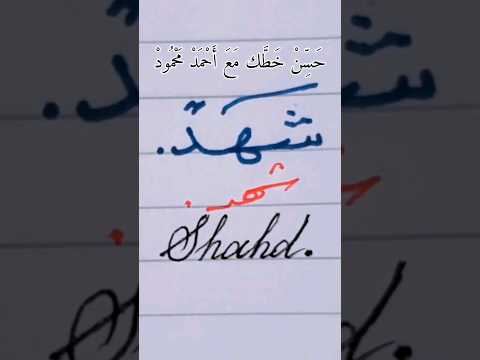 حَسِّنْ خَطَّك مَعَ أَحْمَدْ مَحْمُودْ
شَهَدْ.
شهد.
Shahd.